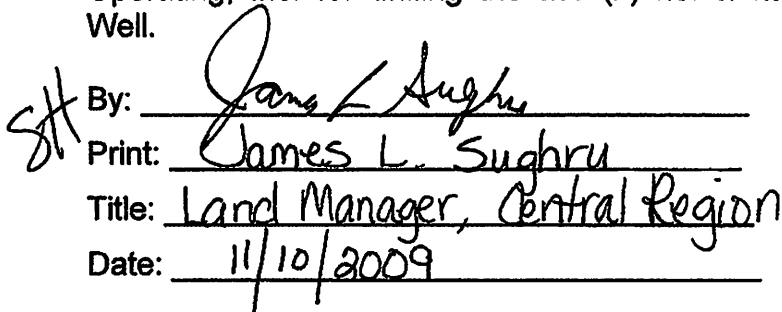 Well.
By: James L Sughru
SH
Print: James L. Sughru
Title: Land Manager, Central Region
Date: 11/10/2009